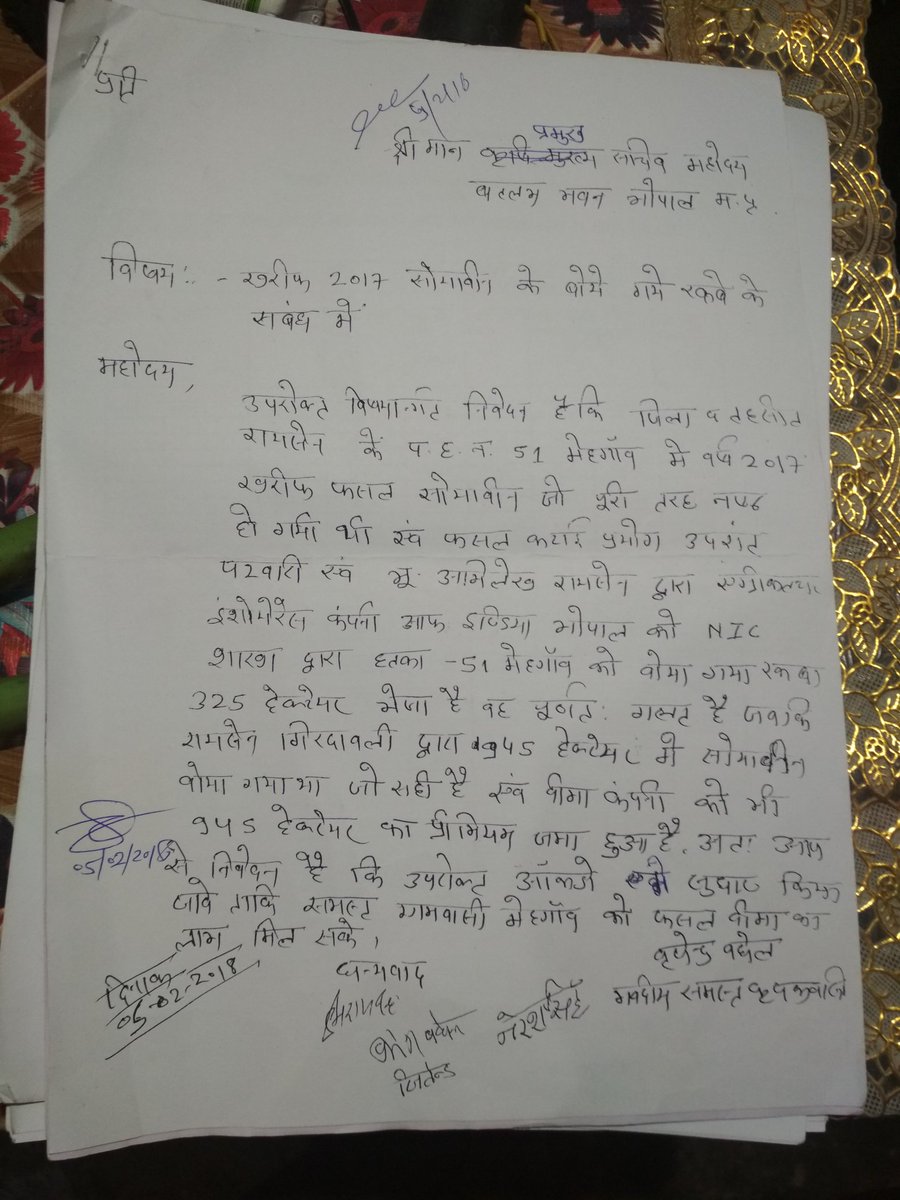 प्रति
5/2/18
श्री मान प्रमुख सचिव महोदय
वल्लभ भवन भोपाल म.प्र.
विषय:- खरीफ 2017 सोयाबीन के बोये गये रकबे के
संबंध में
महोदय,
उपरोक्त विषयान्तर्गत निवेदन है कि जिला व तहसील
रायसेन के प.ह.न. 51 मेहगाँव मे वर्ष 2017
खरीफ फसल सोयाबीन जो पूरी तरह नष्ट
हो गयी थी एवं फसल कटाई प्रयोग उपरांत
पटवारी एवं भू. अभिलेख रायसेन द्वारा एग्रीकल्चर
इंशोरेंस कंपनी आफ इण्डिया भोपाल को NIC
शाखा द्वारा हल्का -51 मेहगाँव को बोया गया रकबा
325 हेक्टेयर भेजा है वह पूर्णत: गलत है जबकि
रायसेन गिरदावली द्वारा 945 हेक्टेयर में सोयाबीन
बोया गया था जो सही है एवं बीमा कंपनी को भी
945 हेक्टेयर का प्रीमियम जमा हुआ है. अत: आप
05/02/2018
से निवेदन है कि उपरोक्त आँकडो में सुधार किया
जावे ताकि समस्त ग्रामवासी मेहगाँव को फसल बीमा का
लाभ मिल सके,
धन्यवाद
दिनांक
05-02-2018
बघेल
समस्त कृषक
नरेश सिंह
जितेन्द्र